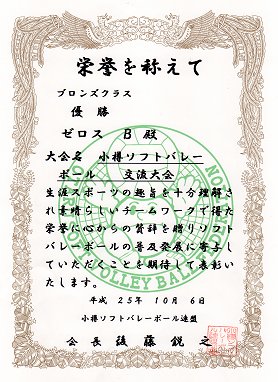 栄誉を称えて
ブロンズクラス
優勝
ゼロス B 殿
大会名 小樽ソフトバレー
ボール 交流大会
生涯スポーツの趣旨を十分理解さ
れ素晴らしいチームワークで得た
栄誉に心からの賛辞を贈りソフト
バレーボールの普及発展に寄与し
ていただくことを期待して表彰い
たします。
平成 25年 10月 6日
小樽ソフトバレーボール連盟
会長 後藤 鋭之
VOLLEY BALL